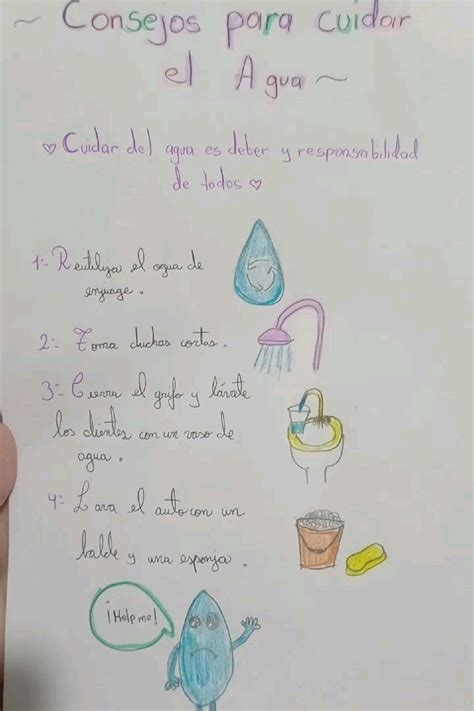 ~ Consejos para cuidar
el Agua ~
♡ Cuidar del agua es deber y responsabilidad
de todos ♡
1:- Reutiliza el agua de
enjuage.
2:- Toma duchas cortas.
3:- Cierra el grifo y lávate
los dientes con un vaso de
agua.
4:- Lava el auto con un
balde y una esponja.
¡Help me!